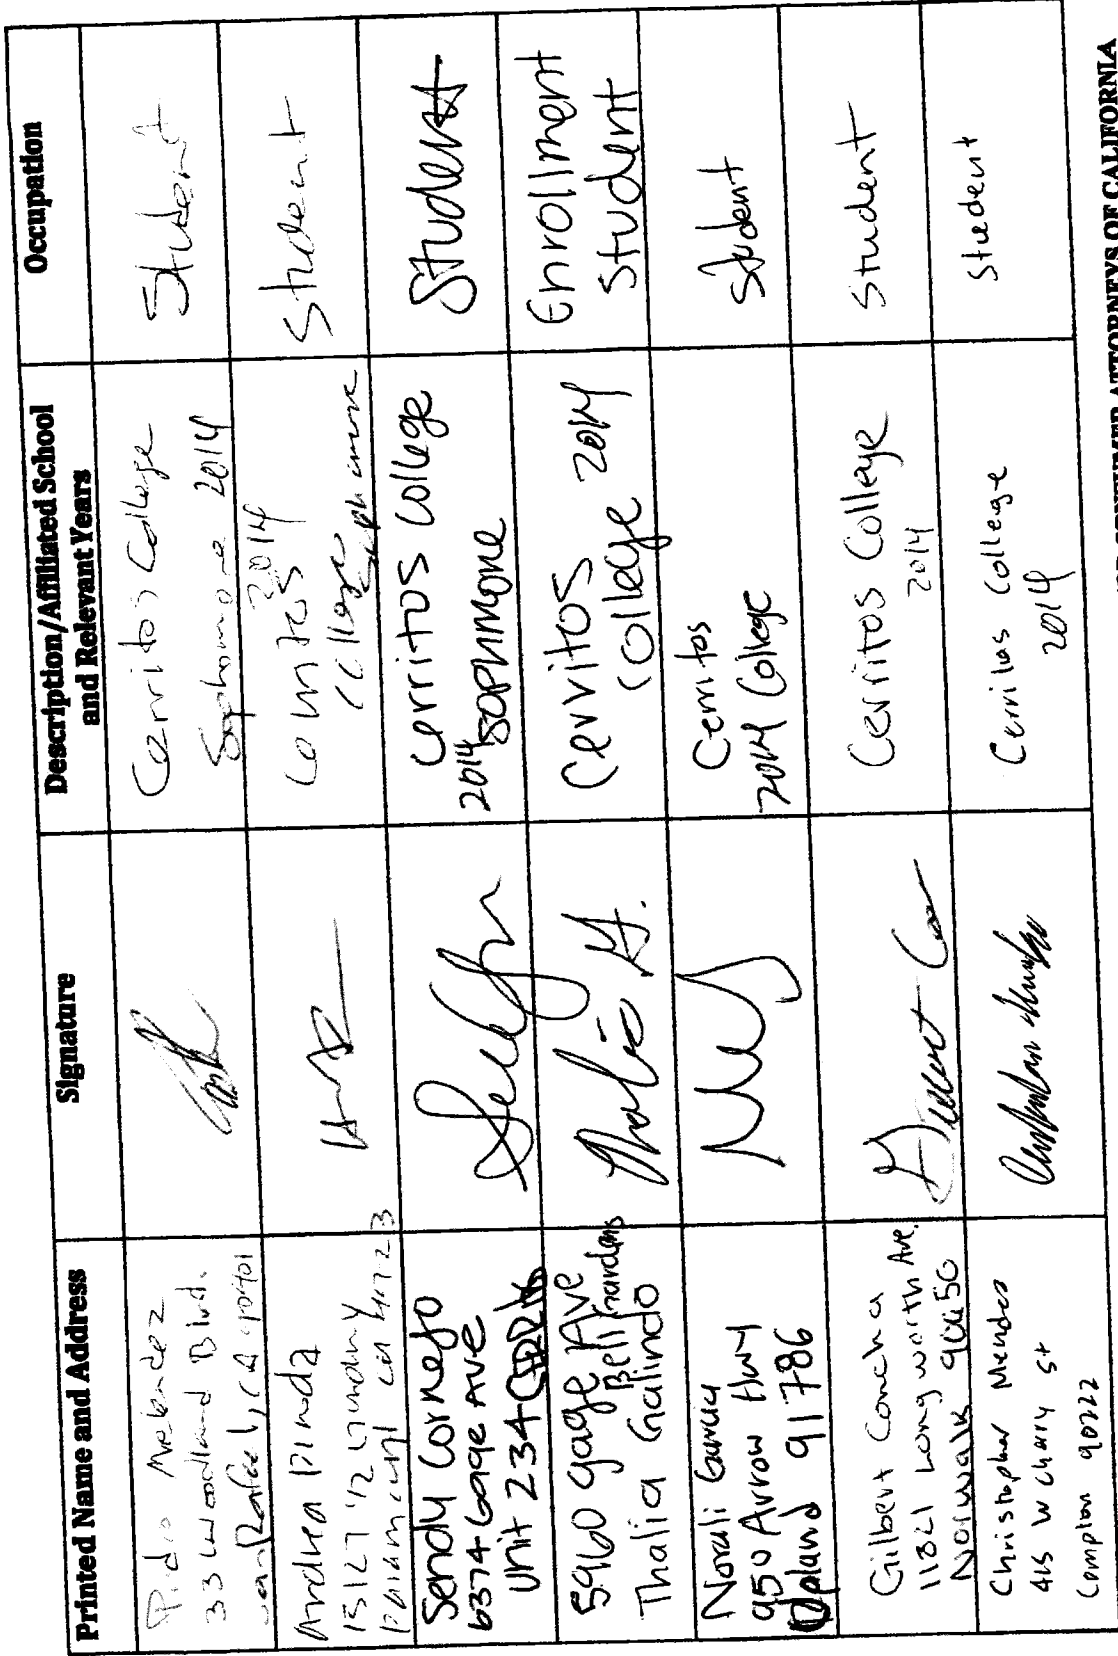 Printed Name and Address
Signature
Description/Affiliated School
and Relevant Years
Occupation
Pedro Melendez
33 Woodland Blvd.
San Rafael, CA
Cerritos College
Sophomore 2014
Student
Andrea Pineda
15127 1/2
2014
College
Student
Sendy Cornejo
6374 Gage Ave
Unit 234
Cerritos College
2014
Sophmore
Student
5960 Gage Ave
Bell Gardens
Thalia Galindo
Thalia G.
Cerritos
College 2014
Enrollment
Student
Norali Garcia
950 Arrow Hwy
Upland 91786
Cerritos
2014 College
Student
Gilbert Concha
11821 Longworth Ave.
Norwalk 90650
Cerritos College
2014
Student
Christopher Mendez
415 W Cherry St
Compton 90222
Cerritos College
2014
Student
CONSUMER ATTORNEYS OF CALIFORNIA